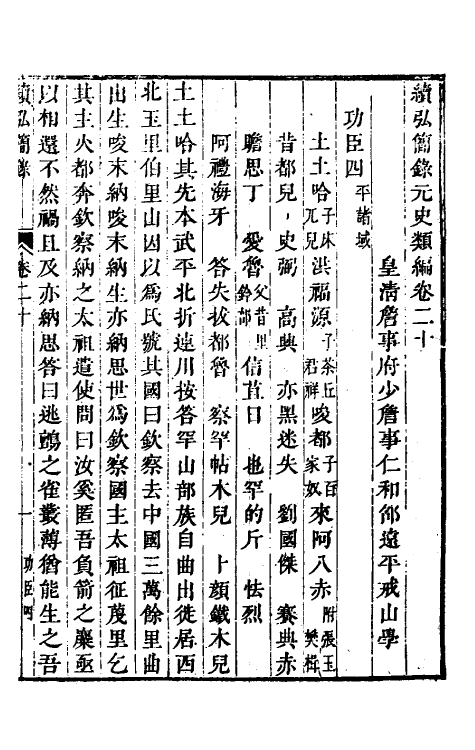 續弘簡錄元史類編卷二十
皇淸詹事府少詹事仁和邵遠平戒山學
功臣四平諸域
土土哈子床兀兒洪福源子茶丘君祥唆都子百家奴來阿八赤附張玉樊楫
昔都兒 史弼 高興 亦黑迷失 劉國傑 賽典赤
贍思丁 愛魯父昔里鈐部信苴日 也罕的斤 怯烈
阿禮海牙 答失拔都魯 察罕帖木兒 卜顏鐵木兒
土土哈其先本武平北折連川按答罕山部族自曲出徙居西
北玉里伯里山因以爲氏號其國曰欽察去中國三萬餘里曲
出生唆末納唆末納生亦納思世爲欽察國主太祖征蔑里乞
其主火都奔欽察納之太祖遣使問曰汝奚匿吾負箭之麋亟
以相還不然禍且及亦納思答曰逃鸇之雀叢薄猶能生之吾
續弘簡錄
卷二十
一
功臣四